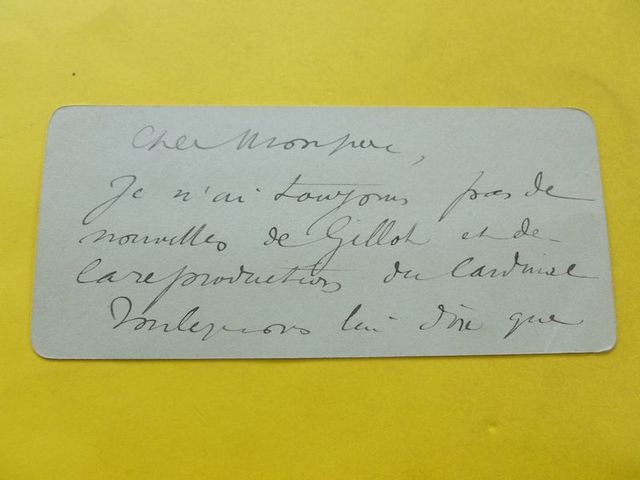 Cher Monsieur,
Je n'ai toujours pas de
nouvelles de Gillot et de
la reproduction du Cardinal
Voulez-vous lui dire que